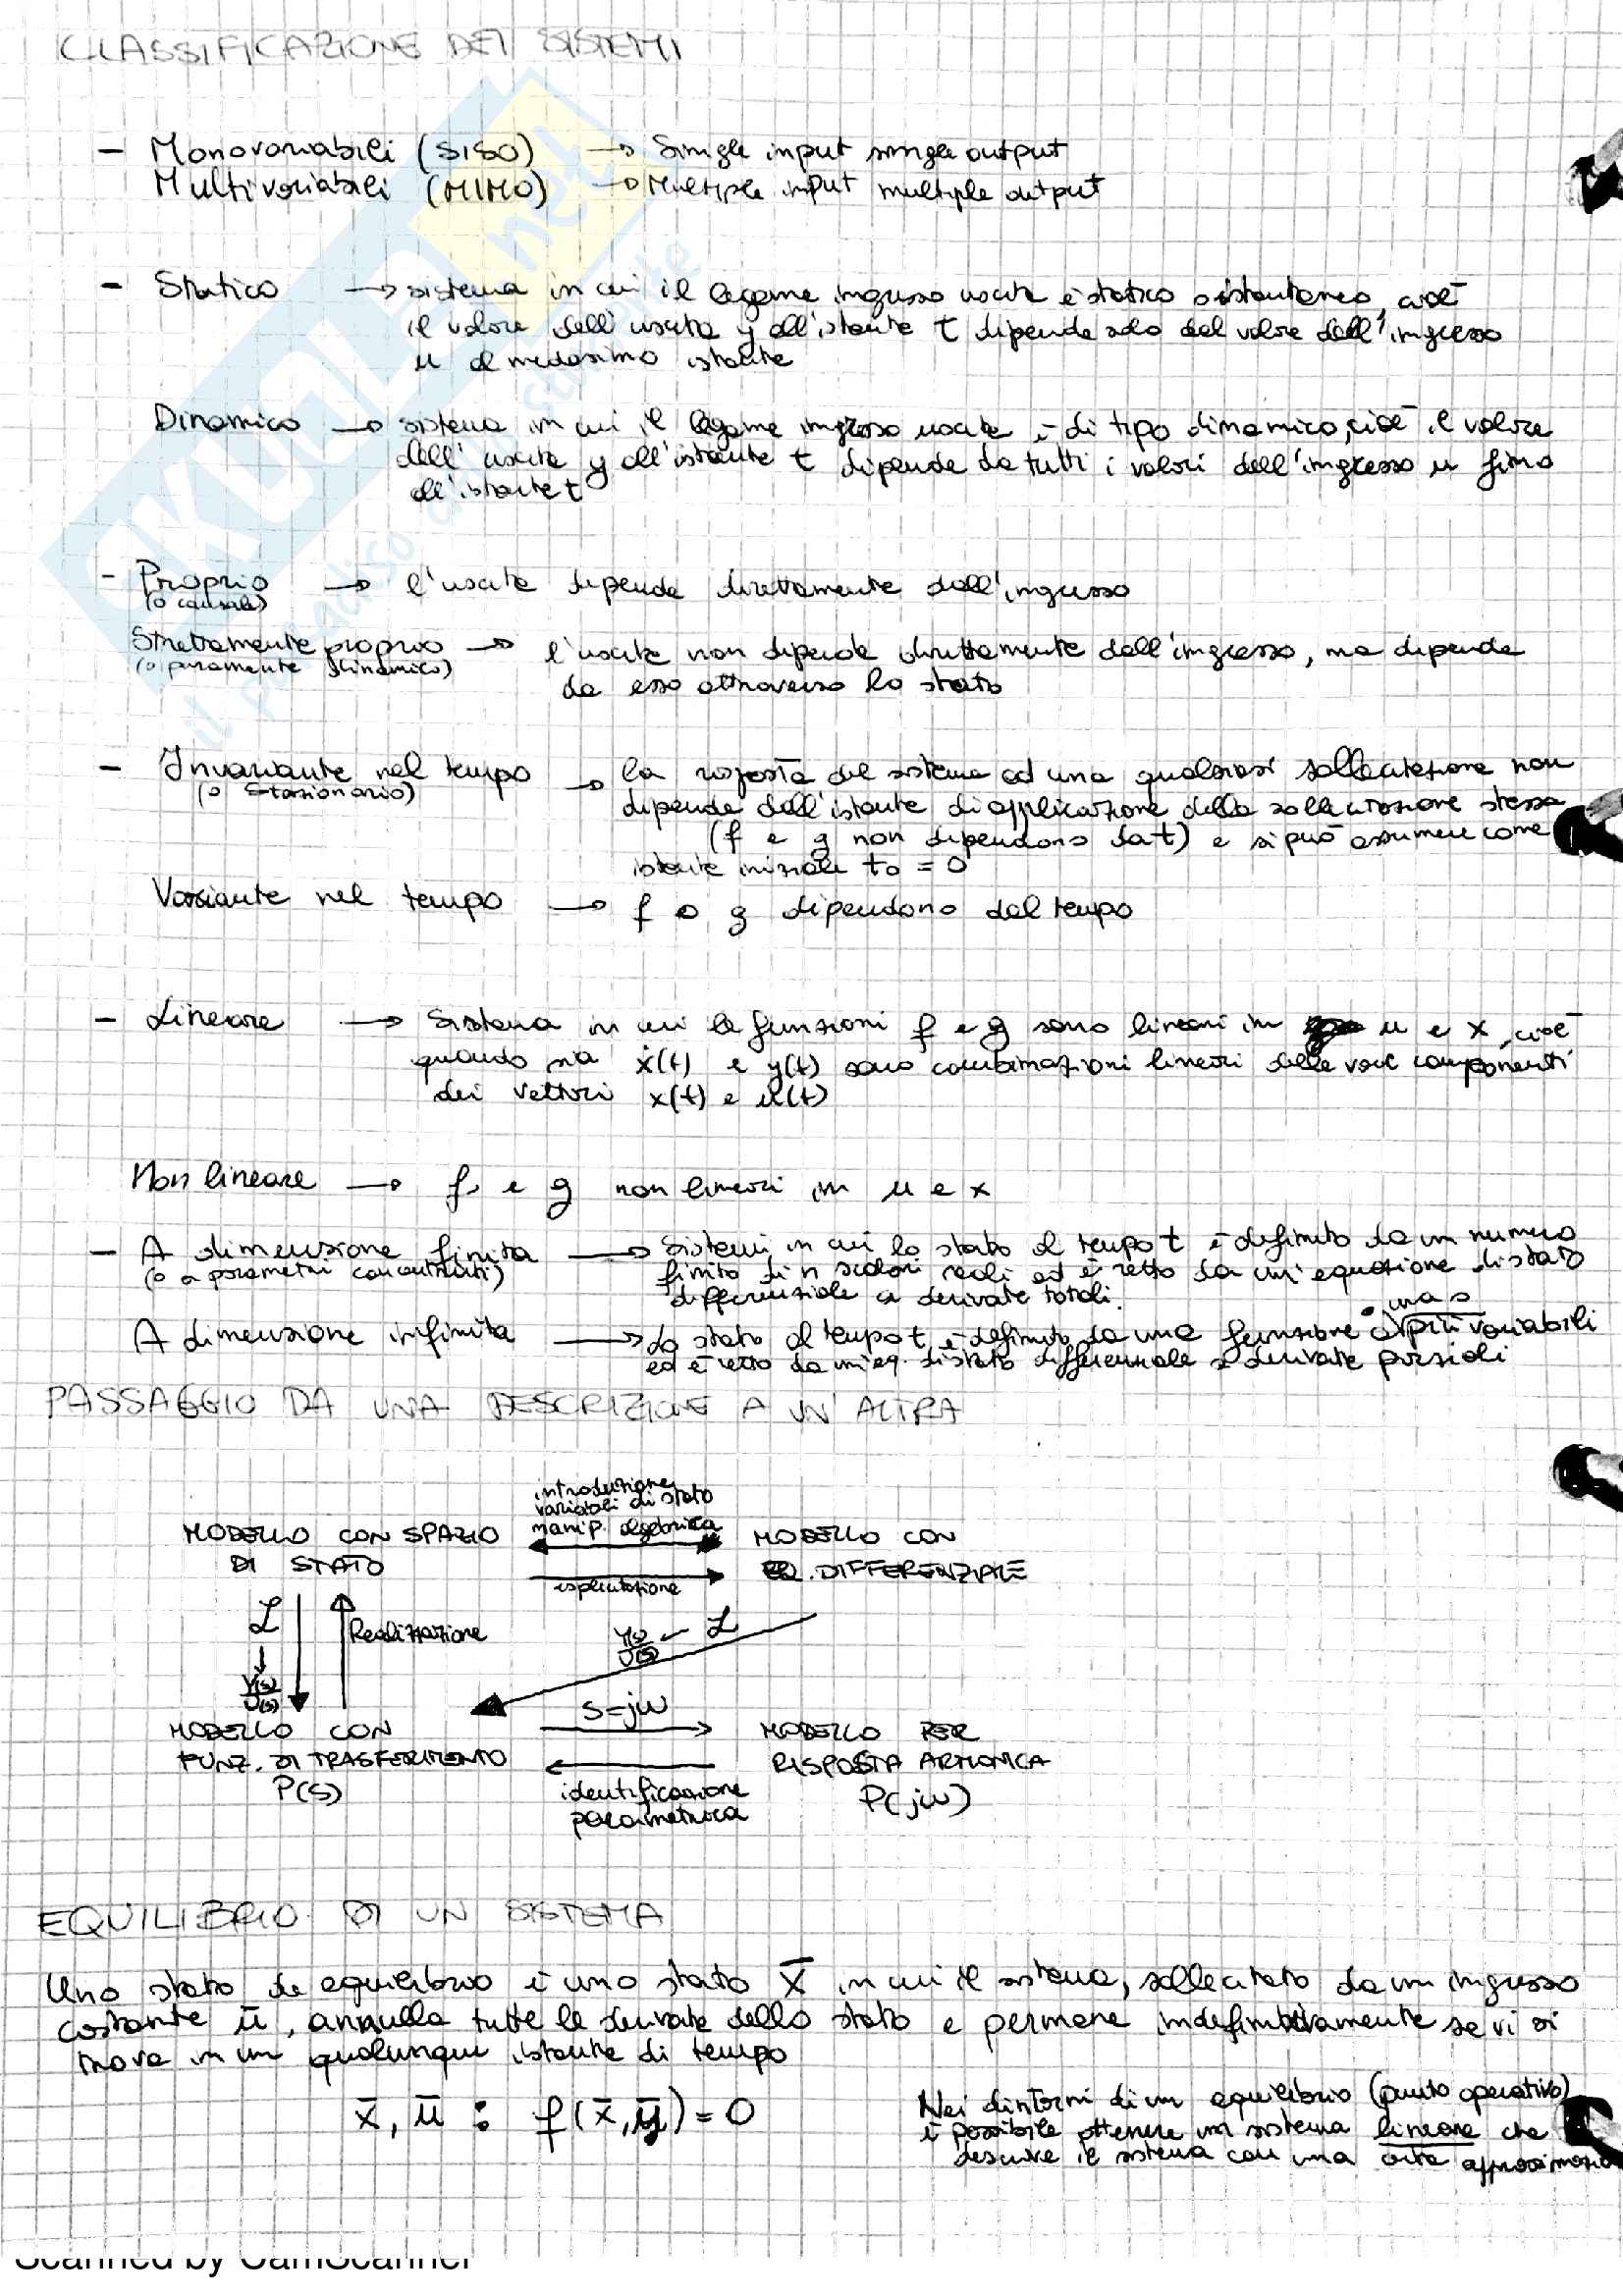 CLASSIFICAZIONE DEI SISTEMI
- Monovariabili (SISO) → Single input single output
Multivariabili (MIMO) → Multiple input multiple output
- Statico → sistema in cui il legame ingresso uscita è statico o istantaneo, cioè
il valore dell'uscita y all'istante t dipende solo dal valore dell'ingresso
u al medesimo istante
Dinamico → sistema in cui il legame ingresso uscita è di tipo dinamico, cioè il valore
dell'uscita y all'istante t dipende da tutti i valori dell'ingresso u fino
all'istante t
- Proprio → l'uscita dipende direttamente dall'ingresso
(o causale)
Strettamente proprio → l'uscita non dipende direttamente dall'ingresso, ma dipende
(o puramente dinamico) da esso attraverso lo stato
- Invariante nel tempo → la risposta del sistema ad una qualsiasi sollecitazione non
(o stazionario) dipende dall'istante di applicazione della sollecitazione stessa
(f e g non dipendono da t) e si può assumere come
istante iniziale t0 = 0
Variante nel tempo → f o g dipendono dal tempo
- Lineare → Sistema in cui le funzioni f e g sono lineari in u e x, cioè
quando sia ẋ(t) e y(t) sono combinazioni lineari delle varie componenti
dei vettori x(t) e u(t)
Non lineare → f e g non lineari in u e x
- A dimensione finita → Sistemi in cui lo stato al tempo t è definito da un numero
(o a parametri concentrati) finito di n scalari reali ed è retto da un'equazione di stato
differenziale a derivate totali.
A dimensione infinita → lo stato al tempo t è definito da una funzione a una o più variabili
ed è retto da un'eq. di stato differenziale a derivate parziali
PASSAGGIO DA UNA DESCRIZIONE A UN'ALTRA
introduzione
variabili di stato
manip. algebrica
MODELLO CON SPAZIO
DI STATO
MODELLO CON
EQ. DIFFERENZIALE
esplicitazione
ℒ
Realizzazione
Y(s)/U(s)
Y(s)/U(s) ← ℒ
s=jω
MODELLO CON
FUNZ. DI TRASFERIMENTO
P(s)
MODELLO PER
RISPOSTA ARMONICA
P(jω)
identificazione
parametrica
EQUILIBRIO DI UN SISTEMA
Uno stato di equilibrio è uno stato x̄ in cui il sistema, sollecitato da un ingresso
costante ū, annulla tutte le derivate dello stato e permane indefinitivamente se vi si
trova in un qualunque istante di tempo
x̄, ū : f(x̄,ū) = 0
Nei dintorni di un equilibrio (punto operativo)
è possibile ottenere un sistema lineare che
descrive il sistema con una certa
Scanned by CamScanner
SKUOLA.net
il paradiso dello studente